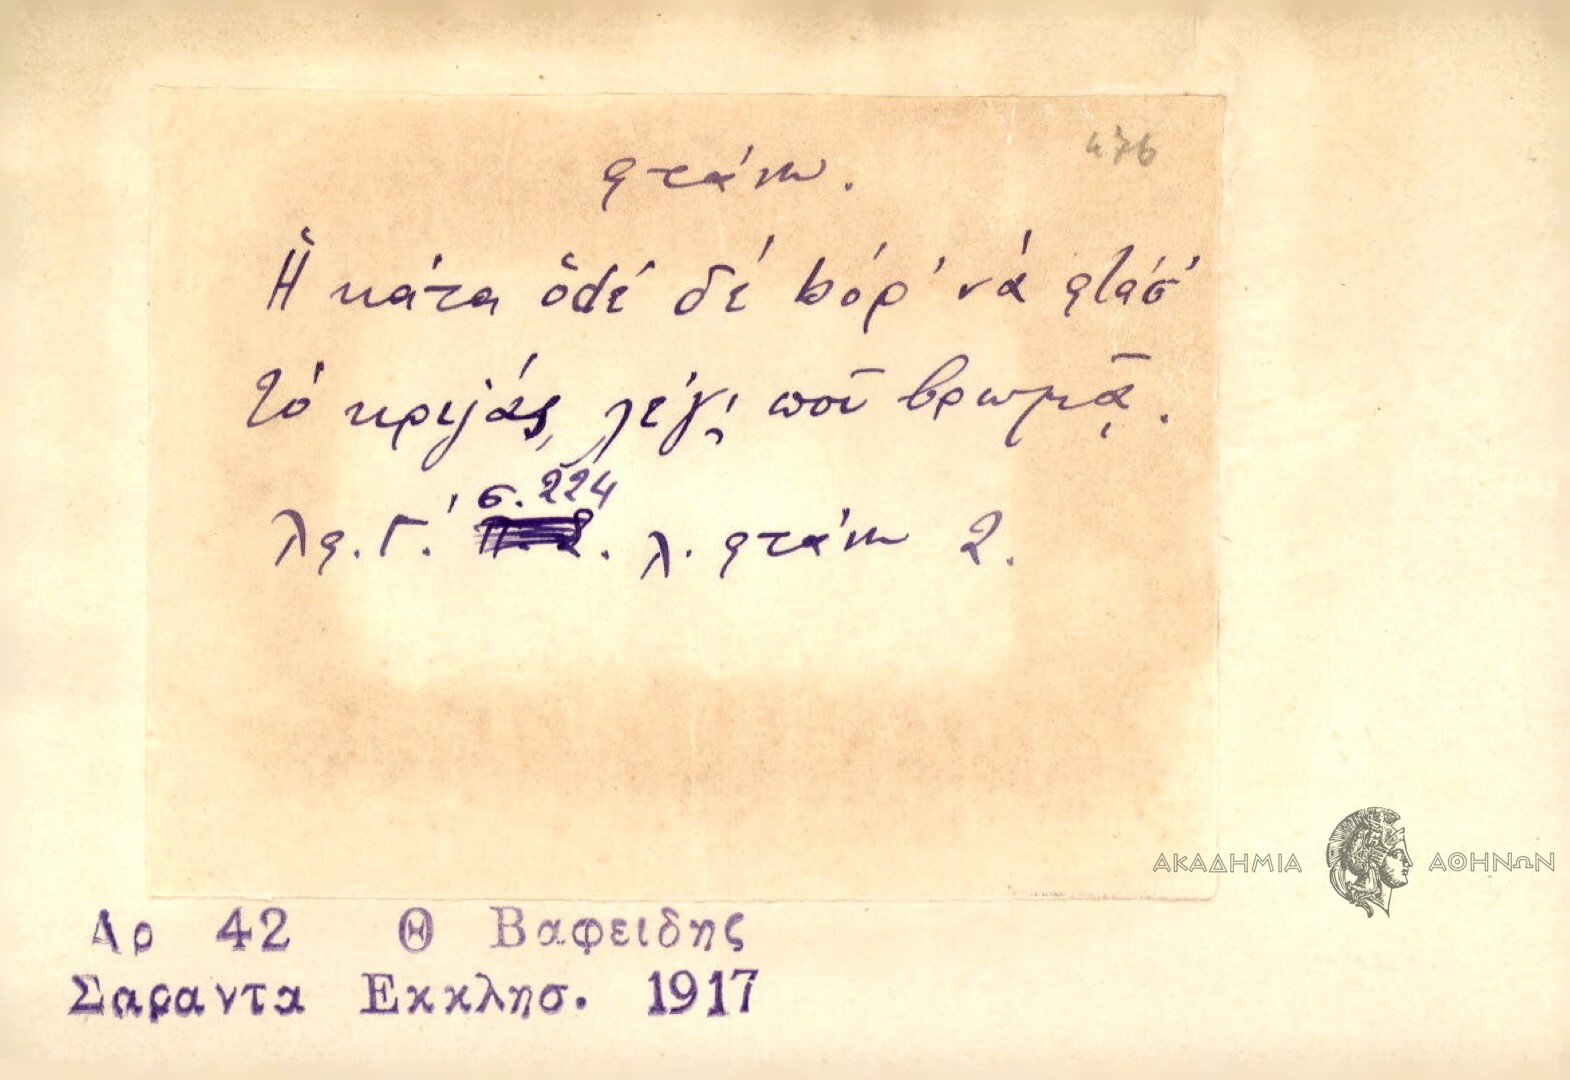 476
φτάνω.
Ἡ κάτα ὅdέ δέ bόρ' νά φtάσ'
τό κρεjάς, λέγ', πού βρωμᾶ.
λφ. Γ'. σ. 224 λ. φτάνω 2.
ΑΚΑΔΗΜΙΑ ΑΘΗΝΩΝ
Αρ 42 Θ Βαφειδης
Σαραντα Εκκλησ. 1917